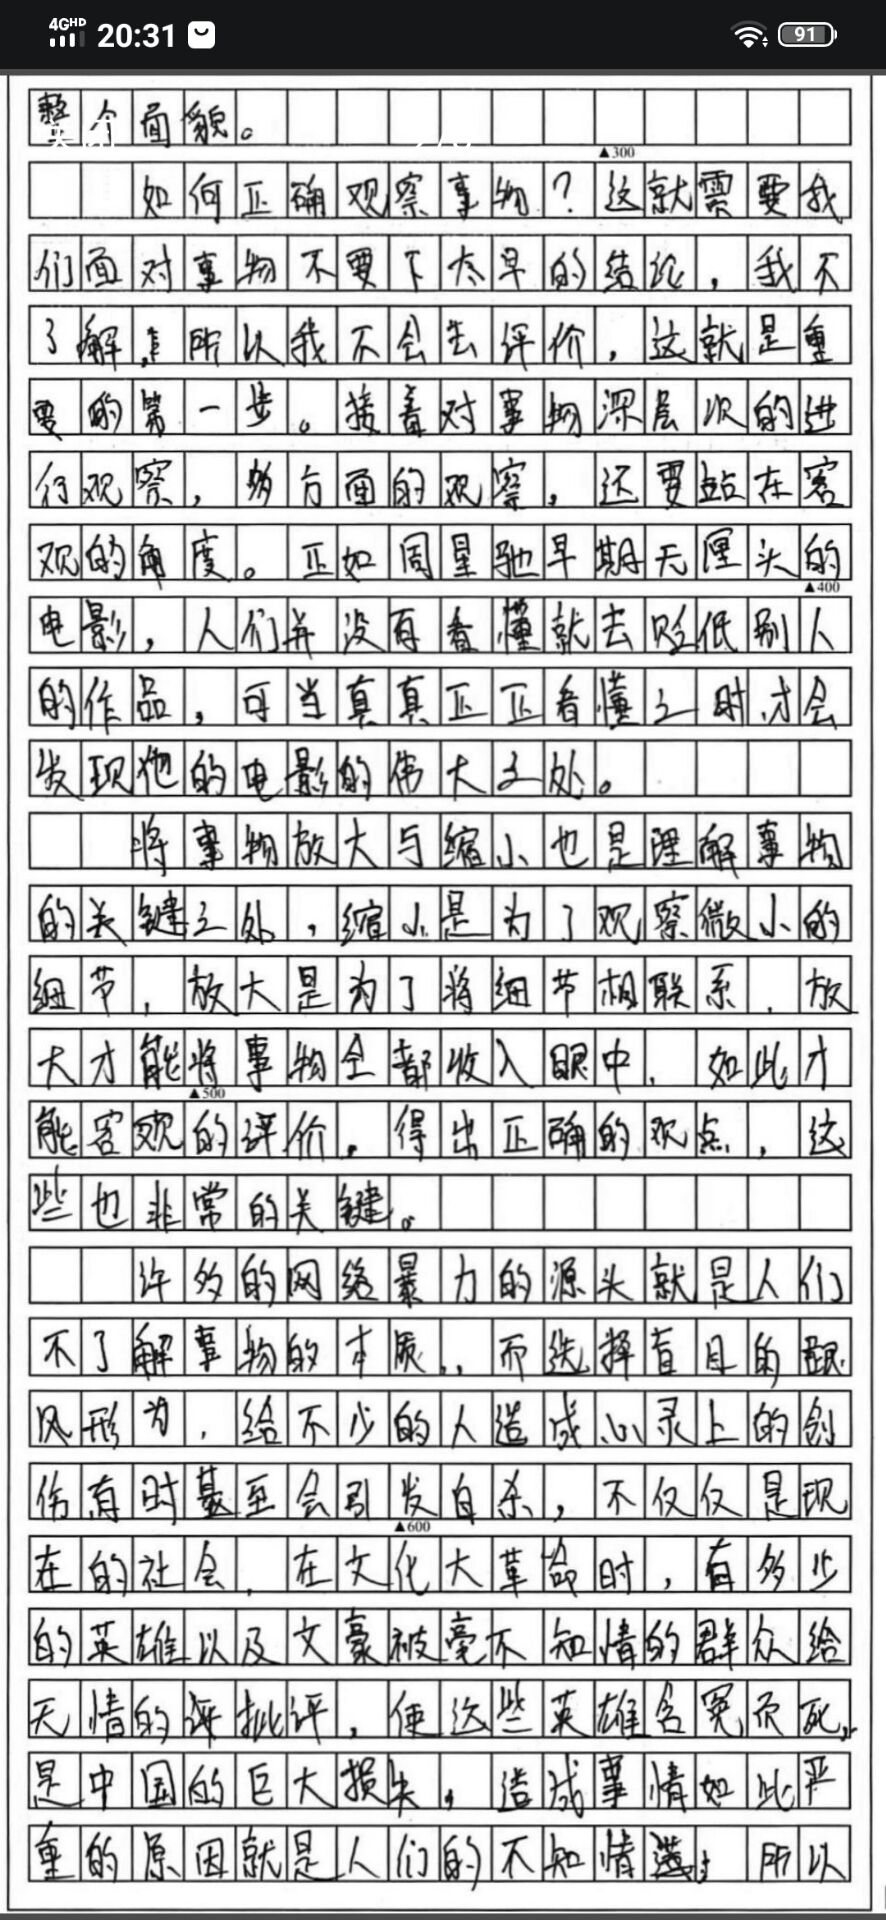 4GHD 20:31 91
整个面貌。
▲300
如何正确观察事物？这就需要我
们面对事物不要下太早的结论，我不
了解，所以我不会去评价，这就是重
要的第一步。接着对事物深层次的进
行观察，多方面的观察，还要站在客
观的角度。正如周星驰早期无厘头的
▲400
电影，人们并没有看懂就去贬低别人
的作品，可当真真正正看懂之时才会
发现他的电影的伟大之处。
将事物放大与缩小也是理解事物
的关键之处，缩小是为了观察微小的
细节，放大是为了将细节相联系，放
大才能将事物全都收入眼中，如此才
▲500
能客观的评价，得出正确的观点，这
些也非常的关键。
许多的网络暴力的源头就是人们
不了解事物的本质，而选择盲目的跟
风形为，给不少的人造成心灵上的创
伤有时甚至会引发自杀，不仅仅是现
▲600
在的社会，在文化大革命时，有多少
的英雄以及文豪被毫不知情的群众给
无情的评批评，使这些英雄含冤而死，
是中国的巨大损失，造成事情如此严
重的原因就是人们的不知情 所以